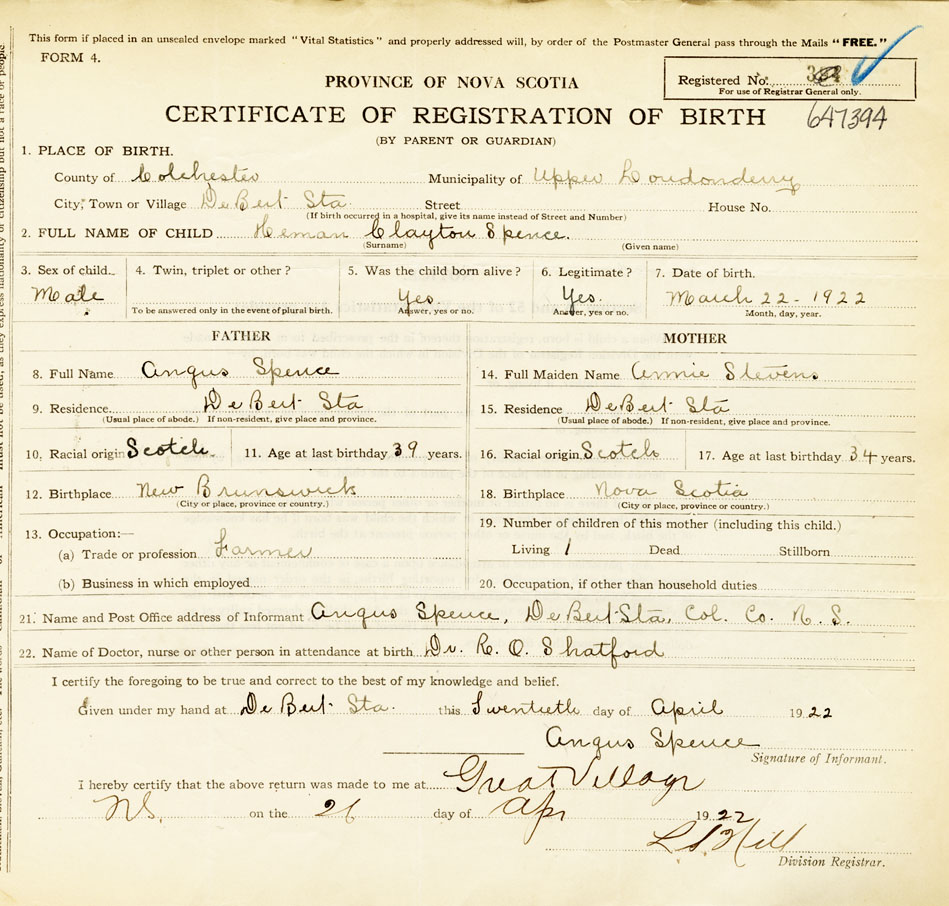 This form if placed in an unsealed envelope marked "Vital Statistics" and properly addressed will, by order of the Postmaster General pass through the Mails "FREE."
FORM 4.
PROVINCE OF NOVA SCOTIA
Registered No.
For use of Registrar General only.
CERTIFICATE OF REGISTRATION OF BIRTH 647394
(BY PARENT OR GUARDIAN)
1. PLACE OF BIRTH.
County of Colchester Municipality of Upper Londonderry
City, Town or Village DeBert Sta. Street House No.
(If birth occurred in a hospital, give its name instead of Street and Number)
2. FULL NAME OF CHILD Heman Clayton Spence.
(Surname) (Given name)
3. Sex of child. 4. Twin, triplet or other? 5. Was the child born alive? 6. Legitimate? 7. Date of birth.
Male Yes. Yes. March 22 - 1922
To be answered only in the event of plural birth. Answer, yes or no. Answer, yes or no. Month, day, year.
FATHER MOTHER
8. Full Name Angus Spence 14. Full Maiden Name Annie Stevens
9. Residence DeBert Sta 15. Residence DeBert Sta
(Usual place of abode.) If non-resident, give place and province. (Usual place of abode.) If non-resident, give place and province.
10. Racial origin Scotch. 11. Age at last birthday 39 years. 16. Racial origin Scotch 17. Age at last birthday 34 years.
12. Birthplace New Brunswick 18. Birthplace Nova Scotia
(City or place, province or country.) (City or place, province or country.)
13. Occupation:— 19. Number of children of this mother (including this child.)
(a) Trade or profession Farmer Living 1 Dead Stillborn
(b) Business in which employed 20. Occupation, if other than household duties
21. Name and Post Office address of Informant Angus Spence, DeBert Sta, Col. Co. N. S.
22. Name of Doctor, nurse or other person in attendance at birth Dr. R. O. Shatford
I certify the foregoing to be true and correct to the best of my knowledge and belief.
Given under my hand at DeBert Sta. this Twentieth day of April 1922
Angus Spence
Signature of Informant.
I hereby certify that the above return was made to me at Great Village
N.S. on the 26 day of Apr 1922
Hill
Division Registrar.